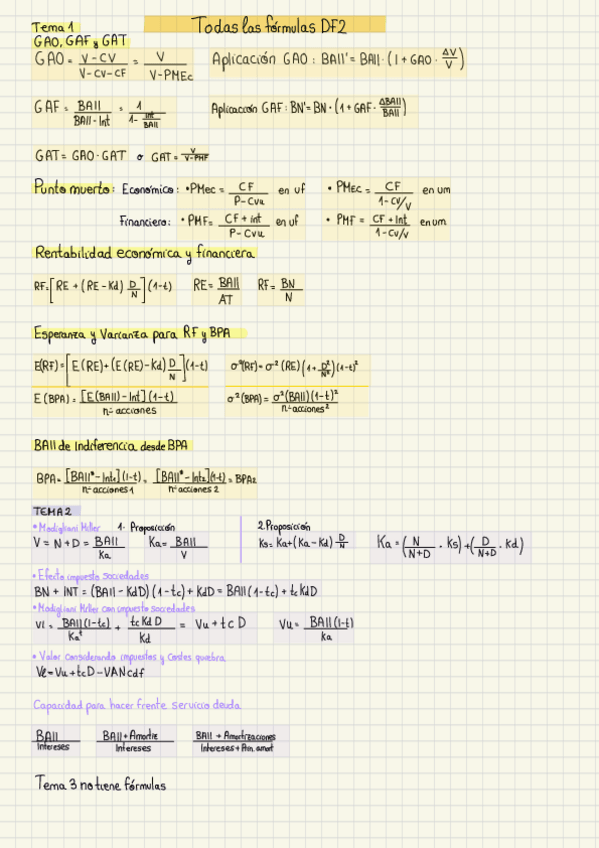 Todas las fórmulas DF2
Tema 1
GAO, GAF y GAT
GAO = V-CV / V-CV-CF = V / V-PMEc    Aplicación GAO: BAII' = BAII · (1 + GAO · ΔV/V)
GAF = BAII / BAII-Int = 1 / 1- int/BAII    Aplicación GAF: BN' = BN · (1 + GAF · ΔBAII/BAII)
GAT = GAO · GAT o GAT = V / V-PMF
Punto muerto: Económico: • PMec = CF / P-Cvu en uf    • PMEC = CF / 1-CV/V en um
Financiero: • PMF = CF + int / P-Cvu en uf    • PMF = CF + Int / 1-CV/V en um
Rentabilidad económica y financiera
RF = [RE + (RE - Kd) D/N] (1-t)    RE = BAII / AT    RF = BN / N
Esperanza y Varianza para RF y BPA
E(RF) = [E(RE) + (E(RE) - Kd) D/N] (1-t)    σ²(RF) = σ²(RE) (1 + D²/N²) (1-t)²
E(BPA) = [E(BAII) - Int] (1-t) / nº acciones    σ²(BPA) = σ²(BAII) (1-t)² / nº acciones²
BAII de Indiferencia desde BPA
BPA = [BAII* - Int1] (1-t) / nº acciones 1 = [BAII* - Int2] (1-t) / nº acciones 2 = BPA2
TEMA 2
• Modigliani Miller 1. Proposición    2. Proposición
V = N + D = BAII / Ka    Ka = BAII / V    Ks = Ka + (Ka - Kd) D/N    Ka = (N / N+D · Ks) + (D / N+D · Kd)
• Efecto impuesto sociedades
BN + INT = (BAII - KdD) (1-tc) + KdD = BAII (1-tc) + tc KdD
• Modigliani Miller con impuesto sociedades
Vl = BAII (1-tc) / Ka* + tc KdD / Kd = Vu + tc D    Vu = BAII (1-t) / Ka
• Valor considerando impuestos y costes quiebra
Vl = Vu + tcD - VANcdf
Capacidad para hacer frente servicio deuda
BAII / Intereses    BAII + Amortiz / Intereses    BAII + Amortizaciones / Intereses + Prin. amort
Tema 3 no tiene fórmulas